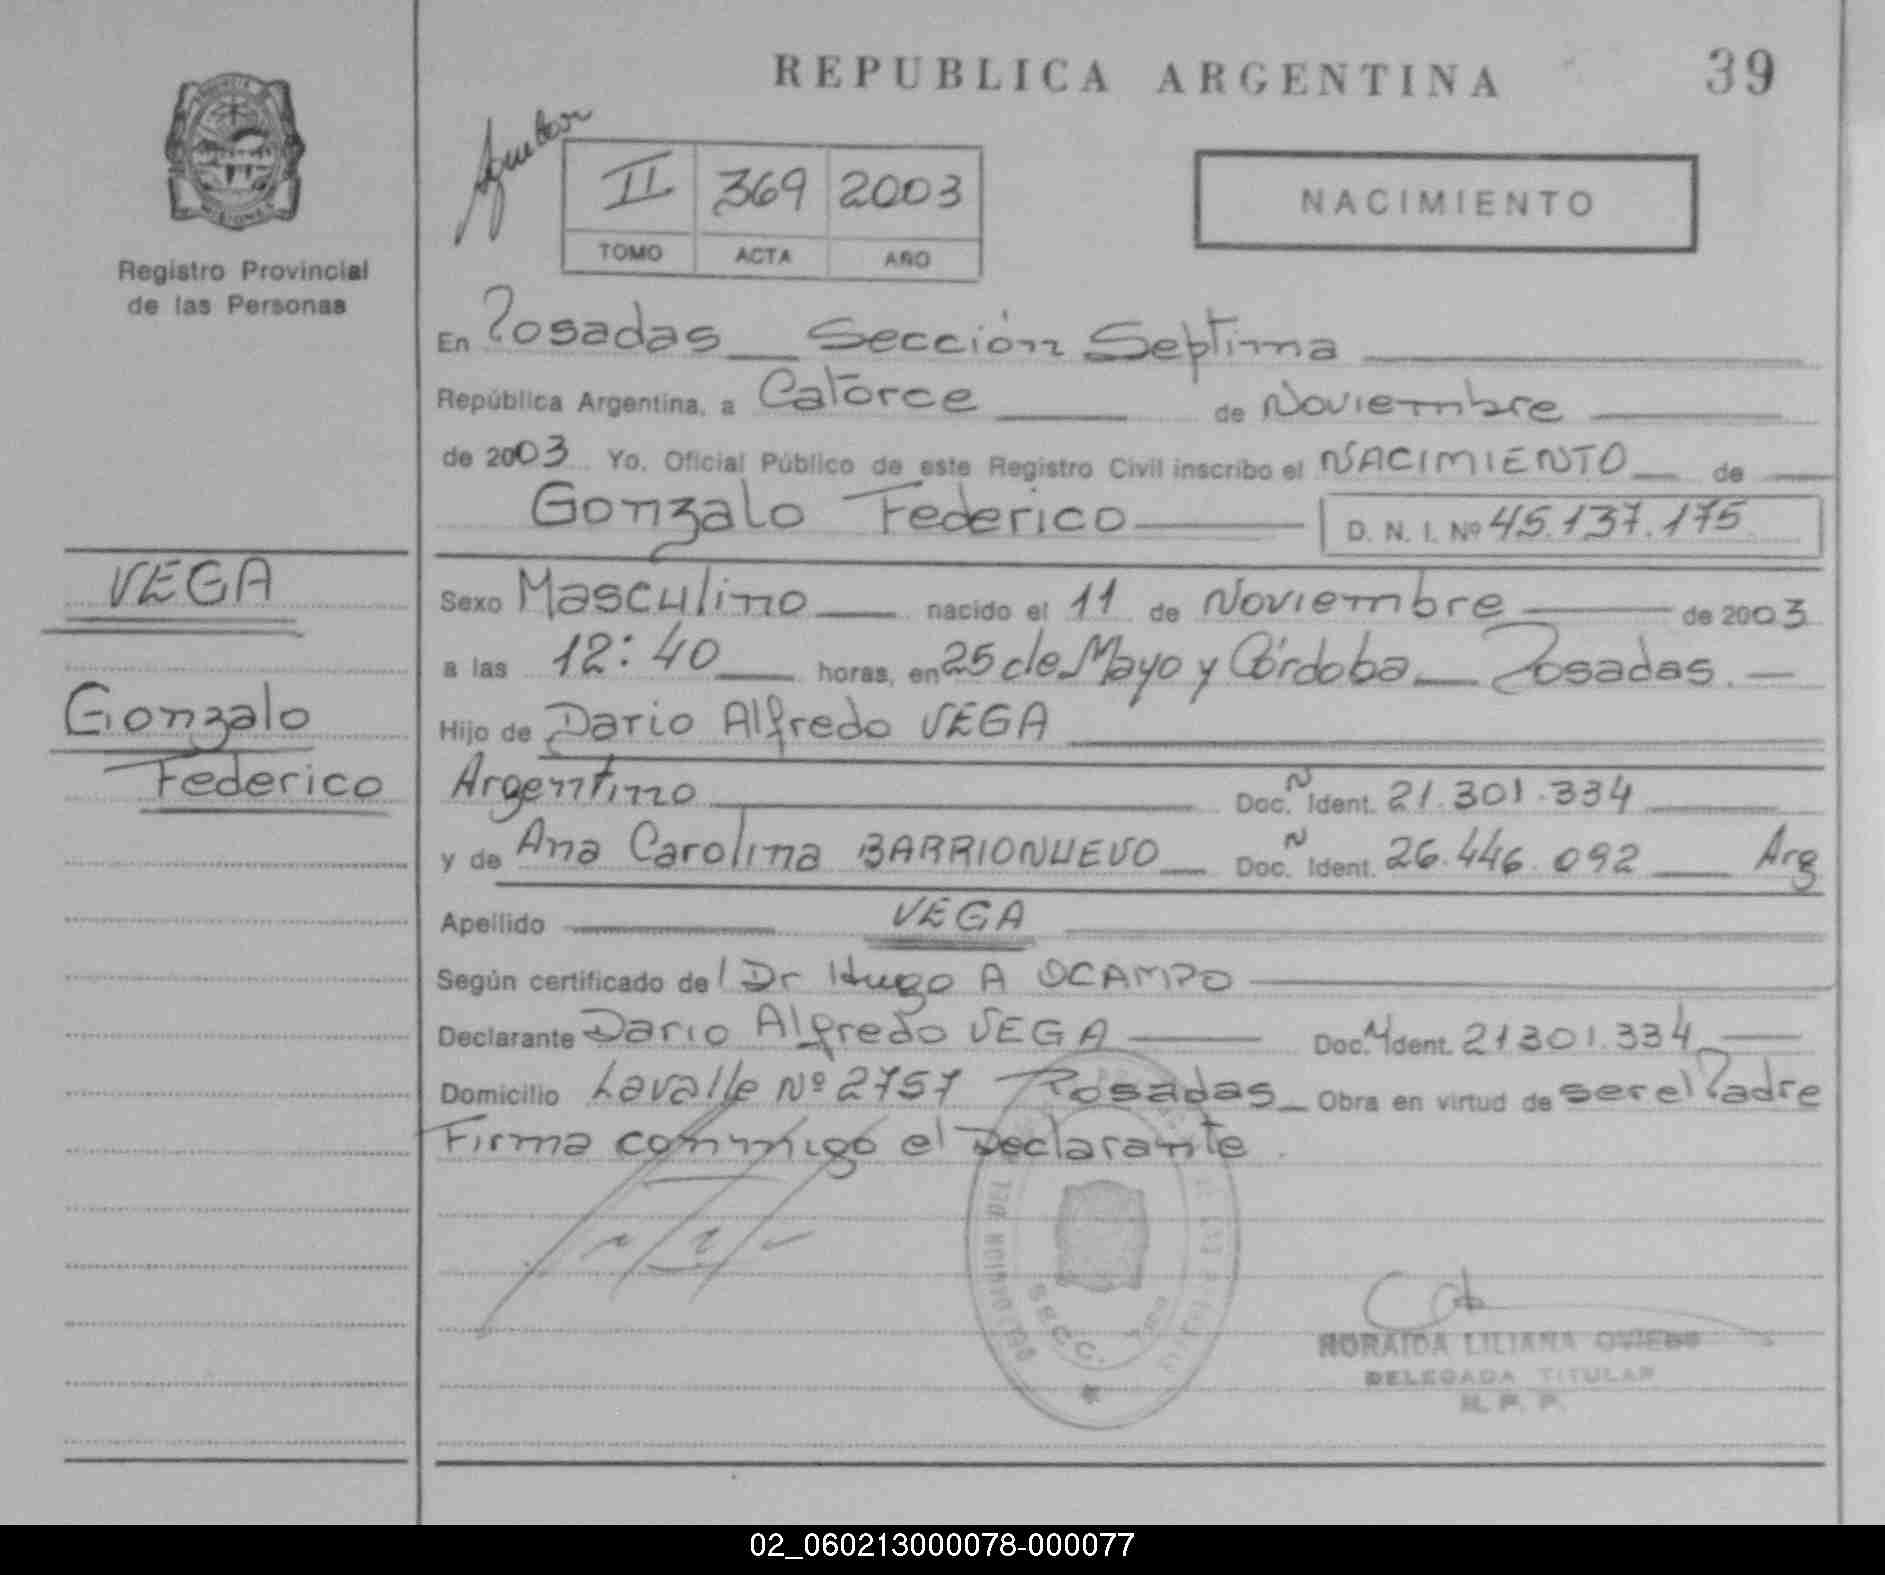 REPUBLICA ARGENTINA
39
Registro Provincial
de las Personas
II 369 2003
TOMO ACTA AÑO
NACIMIENTO
En Posadas Sección Septima
República Argentina, a Catorce de Noviembre
de 2003 Yo, Oficial Público de este Registro Civil inscribo el NACIMIENTO de
Gonzalo Federico D. N. I. Nº 45.137.175
VEGA
Gonzalo
Federico
Sexo Masculino nacido el 11 de Noviembre de 2003
a las 12:40 horas, en 25 de Mayo y Córdoba Posadas.
Hijo de Dario Alfredo VEGA
Argentino Doc. N Ident. 21.301.334
y de Ana Carolina BARRIONUEVO Doc. N Ident. 26.446.092 Arg
Apellido VEGA
Según certificado del Dr Hugo A OCAMPO
Declarante Dario Alfredo VEGA Doc. N Ident. 21301.334
Domicilio Lavalle Nº 2757 Posadas Obra en virtud de ser el Padre
Firma conmigo el Declarante.
SECC.
NORAIDA LILIANA OVIEDO
DELEGADA TITULAR
R. P. P.
02_060213000078-000077